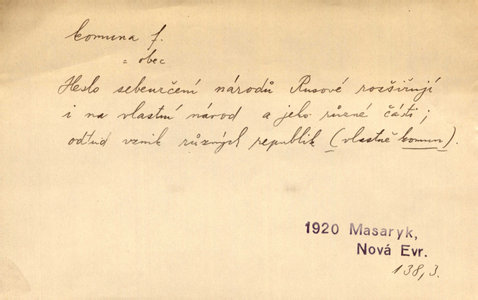 komuna f.
= obec
Heslo sebeurčení národů Rusové rozšiřují
i na vlastní národ a jeho různé části;
odtud vznik různých republik (vlastně komun).
1920 Masaryk,
Nová Evr.
138,3.